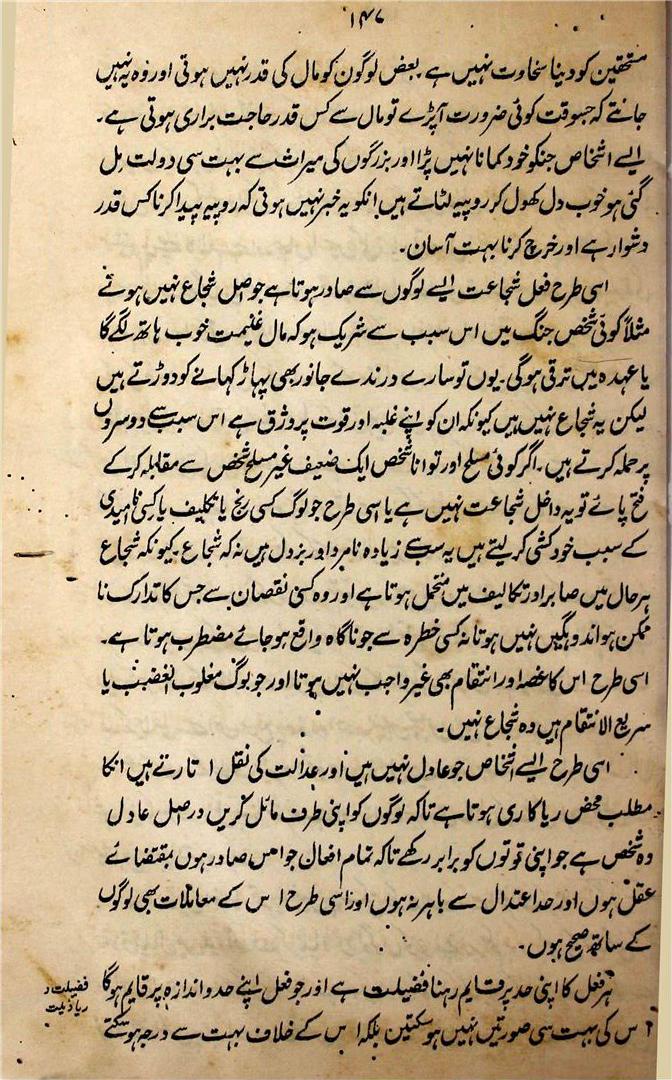 ۱۴۷
مستحقین کو دینا سخاوت نہیں ہے بعض لوگون کو مال کی قدر نہیں ہوتی اور وہ یہ نہیں
جانتے کہ جسوقت کوئی ضرورت آپڑے تو مال سے کس قدر حاجت براری ہوتی ہے۔
ایسے اشخاص جنکو خود کمانا نہیں پڑا اور بزرگوں کی میراث سے بہت سی دولت مل
گئی ہو خوب دل کھول کر روپیہ لٹاتے ہیں انکو یہ خبر نہیں ہوتی کہ روپیہ پیدا کرنا کس قدر
دشوار ہے اور خرچ کرنا بہت آسان۔
اسی طرح فعل شجاعت ایسے لوگوں سے صادر ہوتا ہے جو اصل شجاع نہیں ہوتے
مثلاً کوئی شخص جنگ میں اس سبب سے شریک ہو کہ مال غنیمت خوب ہاتھ لگے گا
یا عہدہ میں ترقی ہوگی۔ یوں تو سارے درندے جانور بھی پہاڑ کہانے کو دوڑتے ہیں
لیکن یہ شجاع نہیں ہیں کیونکہ ان کو اپنے غلبہ اور قوت پر وثوق ہے اس سبب سے دوسروں
پر حملہ کرتے ہیں۔ اگر کوئی مسلح اور توانا شخص ایک ضعیف غیر مسلح شخص سے مقابلہ کرکے
فتح پائے تو یہ داخل شجاعت نہیں ہے یا اسی طرح جو لوگ کسی رنج یا تکلیف یا کسی ناامیدی
کے سبب خودکشی کرلیتے ہیں یہ سب سے زیادہ نامرد اور بزدل ہیں نہ کہ شجاع۔ کیونکہ شجاع
ہر حال میں صابر اور تکالیف میں متحمل ہوتا ہے اور وہ کسی نقصان سے جس کا تدارک نا
ممکن ہو اندوہگیں نہیں ہوتا نہ کسی خطرہ سے جو ناگاہ واقع ہو جائے مضطرب ہوتا ہے۔
اسی طرح اس کا غصہ اور انتقام بھی غیر واجب نہیں ہوتا اور جو لوگ مغلوب الغضب یا
سریع الانتقام ہیں وہ شجاع نہیں۔
اسی طرح ایسے اشخاص جو عادل نہیں ہیں اور عدالت کی نقل اتارتے ہیں انکا
مطلب محض ریاکاری ہوتا ہے تاکہ لوگوں کو اپنی طرف مائل کریں دراصل عادل
وہ شخص ہے جو اپنی قوتوں کو برابر رکھے تاکہ تمام افعال جو اس سے صادر ہوں بمقتضائے
عقل ہوں اور حد اعتدال سے باہر نہ ہوں اور اسی طرح اس کے معاملات بھی لوگوں
کے ساتھ صحیح ہوں۔
ہر فعل کا اپنی حد پر قایم رہنا فضیلت ہے اور جو فعل اپنے حد و اندازہ پر قایم ہوگا
فضیلت و
اس کی بہت سی صورتیں نہیں ہوسکتیں بلکہ اس کے خلاف بہت سے درجہ ہوسکتے